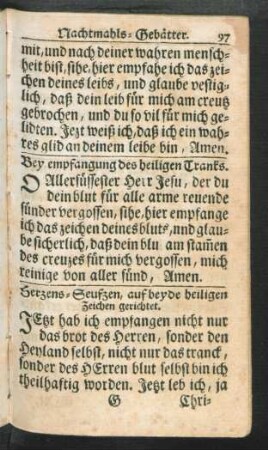 Nachtmahls-Gebätter. 97
mit, und nach deiner wahren mensch-
heit bist, sihe, hier empfahe ich das zei-
chen deines leibs, und glaube vestig-
lich, daß dein leib für mich am creutz
gebrochen, und du so vil für mich ge-
lidten. Jezt weiß ich, daß ich ein wah-
res glid an deinem leibe bin, Amen.
Bey empfangung des heiligen Tranks.
O Allersüssester Herr Jesu, der du
dein blut für alle arme reuende
sünder vergossen, sihe, hier empfange
ich das zeichen deines bluts, und glau-
be sicherlich, daß dein blu am stam̃en
des creuzes für mich vergossen, mich
reinige von aller sünd, Amen.
Herzens-Seufzen, auf beyde heiligen
Zeichen gerichtet.
JEtzt hab ich empfangen nicht nur
das brot des Herren, sonder den
Heyland selbst, nicht nur das tranck,
sonder des HErren blut selbst bin ich
theilhaftig worden. Jetzt leb ich, ja
G Chri-